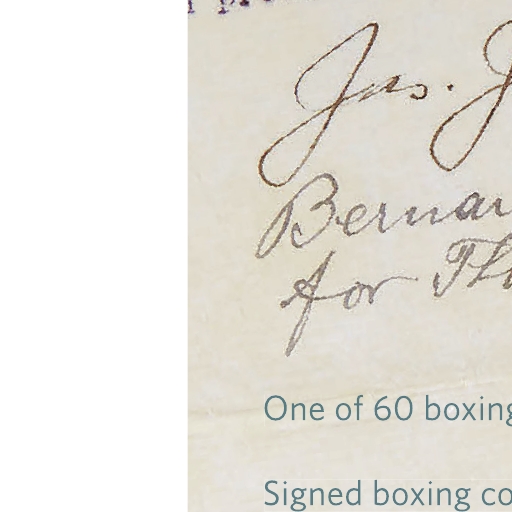 Jas. J
Bernar
for Th
One of 60 boxing
Signed boxing co